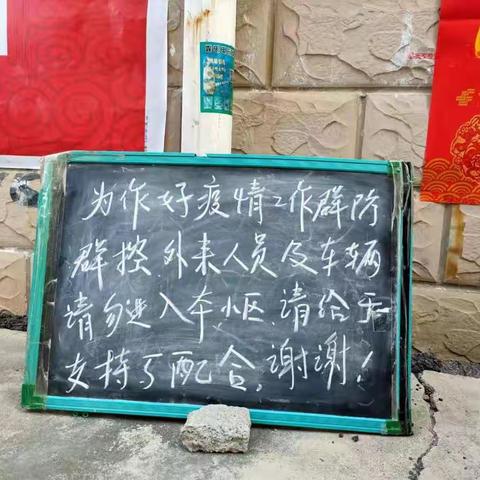 为作好疫情工作群防
群控.外来人员及车辆
请勿进入本小区.请给予
支持与配合,谢谢!